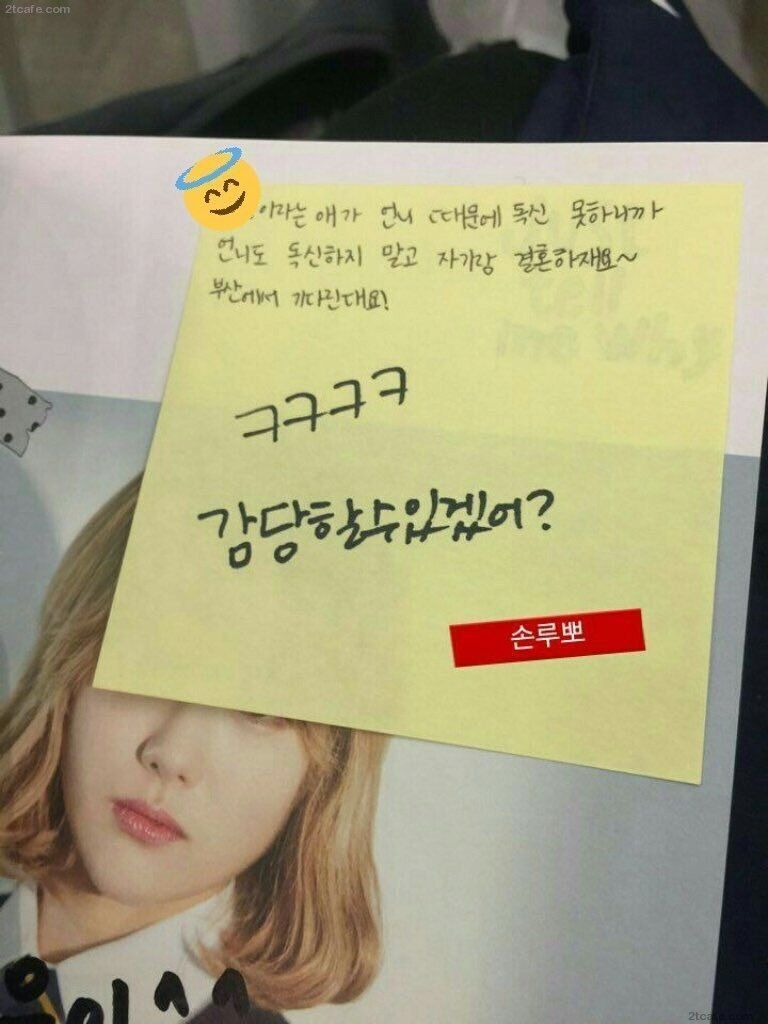 2tcafe.com
이라는 애가 언니 때문에 독신 못하니까
언니도 독신하지 말고 자기랑 결혼하재요~
부산에서 기다린대요!
ㅋㅋㅋㅋ
감당할수있겠어?
손루뽀
tell
me why
이^^
2tcafe.com